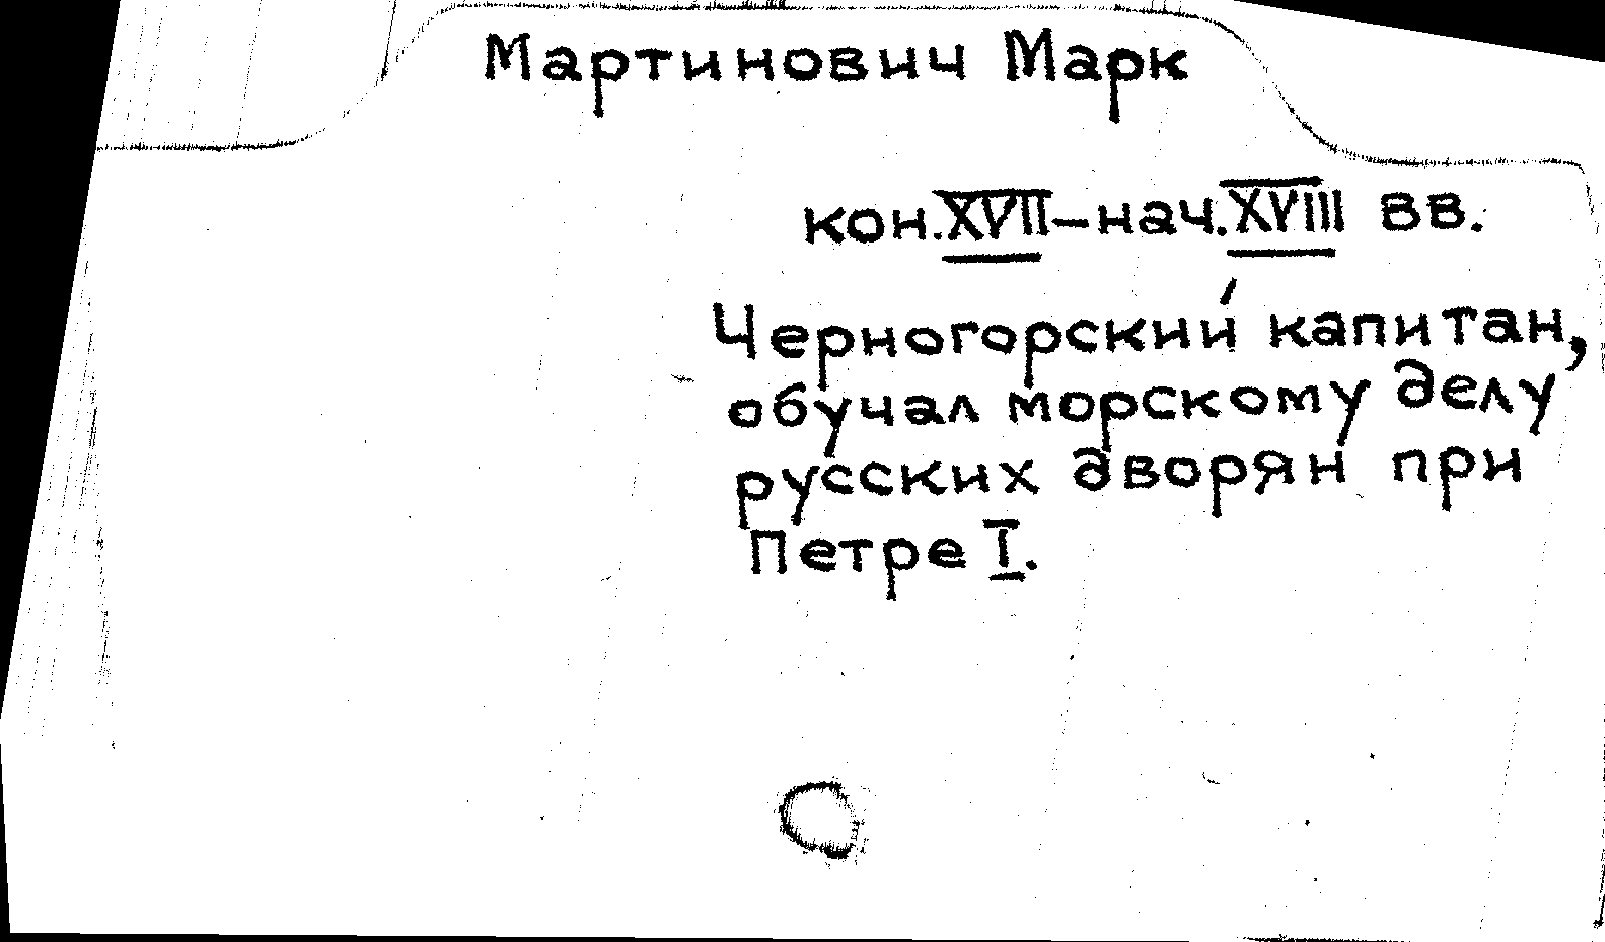 Мартинович Марк
кон. XVII – нач. XVIII вв.
Черногорский капитан,
обучал морскому делу
русских дворян при
Петре I.